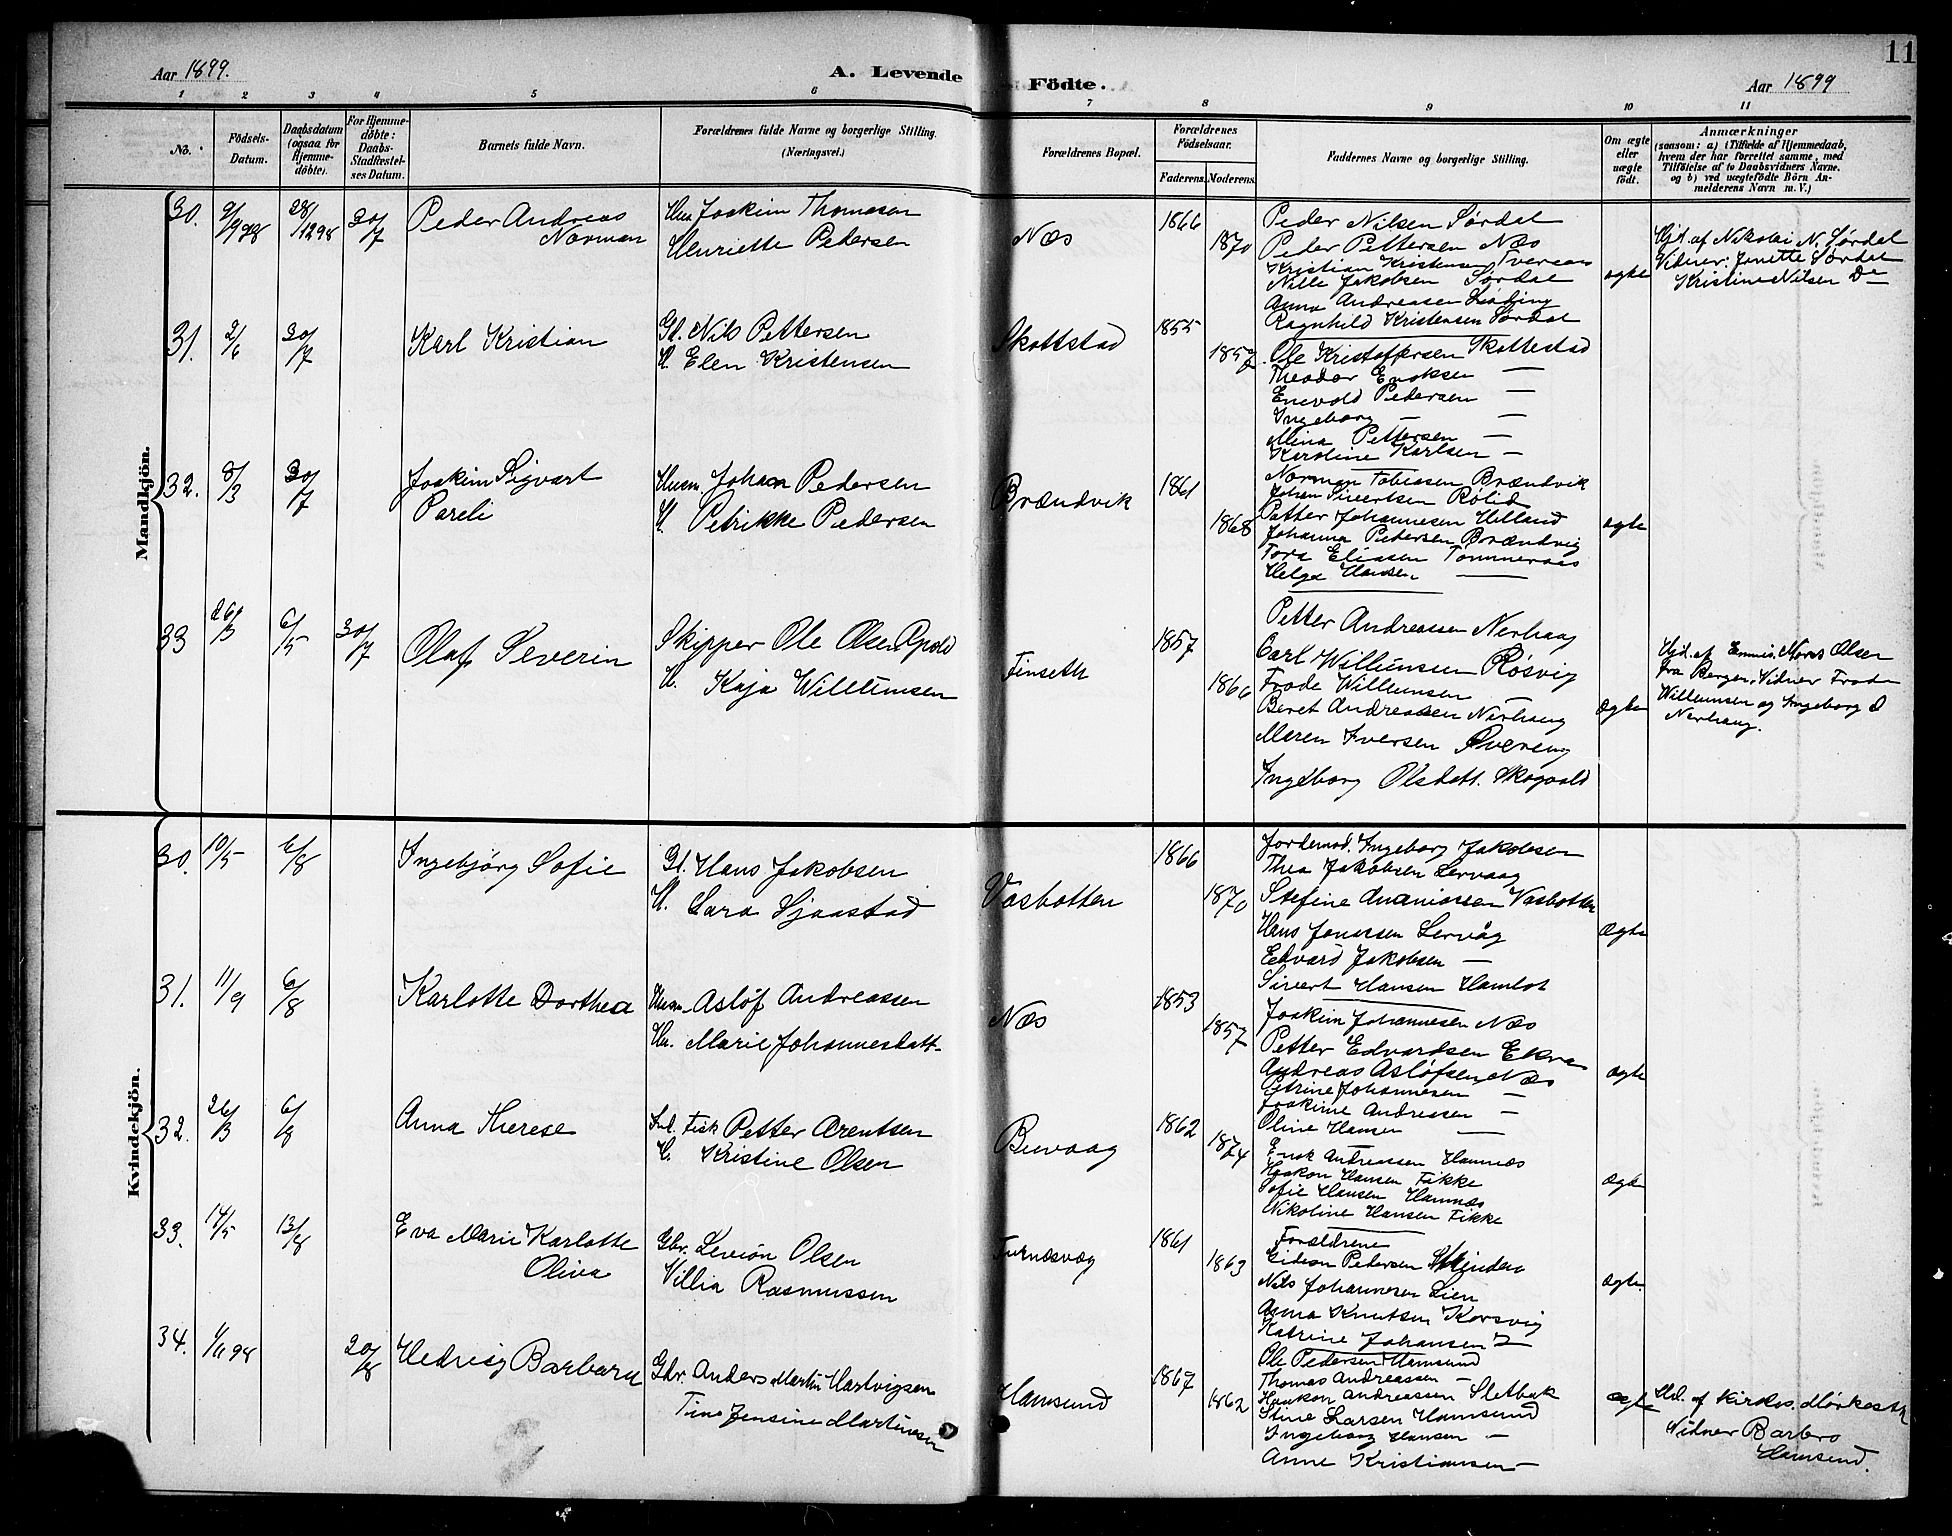 Aar 1899.
A. Levende Födte.
Aar 1899
11
1 2 3 4 5 6 7 8 9 10 11
No.
Födsels-Datum.
Daabsdatum (ogsaa for Hjemmedöbte).
For Hjemmedöbte: Daabs-Stadfæstelses Datum.
Barnets fulde Navn.
Forældrenes fulde Navne og borgerlige Stilling. (Næringsvei.)
Forældrenes Bopæl.
Forældrenes Födselsaar.
Faderens.
Moderens.
Faddernes Navne og borgerlige Stilling.
Om ægte eller uægte födt.
Anmærkninger
(saasom: a) i Tilfælde af Hjemmedaab, hvem der har forrettet samme, med Tilföielse af to Daabsvidners Navne. og b) ved uægtefödte Börn Anmelderens Navn m. V.)
Mandkjön.
30. 9/9 98 28/12 98 30/7 Peder Andreas
Norman
Joakim Thomasen
Henriette Pedersen
Næs
1866
1870
Peder Nilsen Sørdal
Peder Pettersen Næs
Kristian Kristensen Tveraas
Nille Jakobsen Sørdal
Anna Andreasen
Ragnhild Kristensen Sørdal
ægte
Hjd. af Nikolai N. Sørdal
Vidner: Jenette Sørdal
Kristine Nilsen Do
31. 2/6 30/7 Karl Kristian
Gd. Nils Pettersen
H. Elen Kristensen
Skottstad
1855
1857
Ole Kristoffersen Skottestad
Theodor Enoksen —
Enevold Pedersen —
Ingeborg — —
Mina Pettersen —
Karoline Karlsen —
32. 8/3 30/7 Joakim Sigvart
Pareli
Husm Johan Pedersen
H. Petrikke Pedersen
Brændvik
1861
1868
Norman Tobiasen Brændvik
Johan Sivertsen Rölid
Petter Johannesen Helland
Johanna Pedersen Brændvig
Tora Eliasen Tømmeraas
Helga Hansen —
ægte
33 26/3 6/5 30/7 Olaf Severin
Skipper Ole Olsen
H. Kaja Willumsen
Finseth
1857
1866
Petter Andreassen Nerhaug
Carl Willumsen Røsvig
Frode Willumsen —
Beret Andreassen Nerhaug
Maren Iversen
Ingeborg Olsdatt. Skogvold
ægte
Hjd. af Emmis. Olsen
fra Bergen. Vidner Frode
Willumsen og Ingeborg
Nerhaug.
Kvindekjön.
30. 10/5 6/8 Ingebjörg Sofie
Gd. Hans Jakobsen
H. Sara Sjaastad
Vasbotten
1866
1870
Jordemod. Ingeborg Jakobsen
Thea Jakobsen Lervaag
Stefine Ananiassen Vasbotten
Hans Jonassen Lervåg
Edvard Jakobsen —
Sivert Hansen Hamlot
Ægte
31. 11/9 6/8 Karlotte Dorthea
Husm. Aslöf Andreassen
Hu. Marie Johannesdatt.
Næs
1853
1857
Joakim Johannesen Næs
Petter Edvardsen
Andreas Aslöfsen Næs
Petrine Johannesen —
Joakime Andreasen —
Oline Hansen —
ægte
32. 26/3 6/8 Anna Therese
Ind. Fisk Petter Arentsen
H. Kristine Olsen
Buvaag
1862
1874
Enok Andreassen Hamnæs
Haakon Hansen Fikke
Sofie Hansen Hamnæs
Nikoline Hansen Fikke
Ægte
33. 14/5 13/8 Eva Marie Karlotte
Oliva
Gbr. Levion Olsen
Villia Rasmussen
Furnæsvåg
1861
1863
Forældrene
Gideon Pedersen
Nils Johannesen Lien
Anna Knutsen Korsvig
Katrine Johansen
Ægte.
34. 1/11 98 20/8 Hedevig Barbara
Gbr. Anders Martin Hartvigsen
Tina Jensine Martinesen
Hamsund
1867
1862
Ole Pedersen Hamsund
Thomas Andreassen —
Haakon Andreassen Sletbak
Stine Larsen Hamsund
Ingeborg Hansen —
Anne Kristiansen —
ægte
Hd. af Kirkes.
Vidner Barbro
Hamsund.